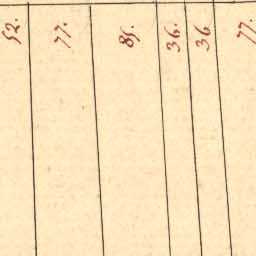 52.
77.
85.
36.
36
77.